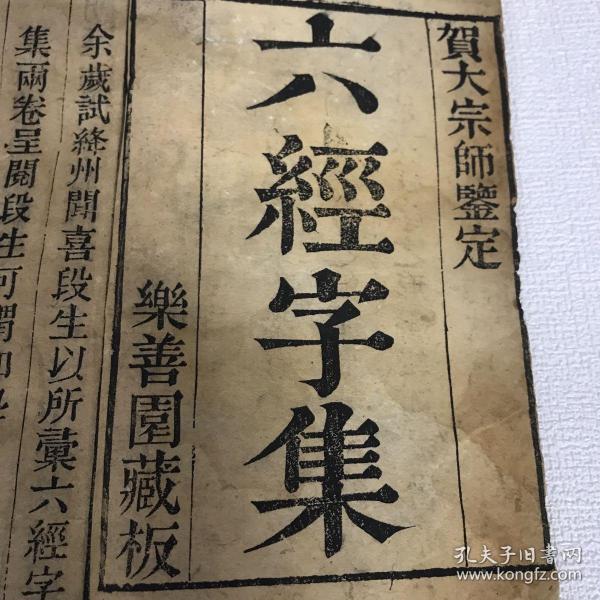 賀大宗師鑒定
六經字集
樂善園藏板
余歲試絳州聞喜段生以所彙六經字
集兩卷呈閱段生可謂加
孔夫子旧书网
www.kongfz.com